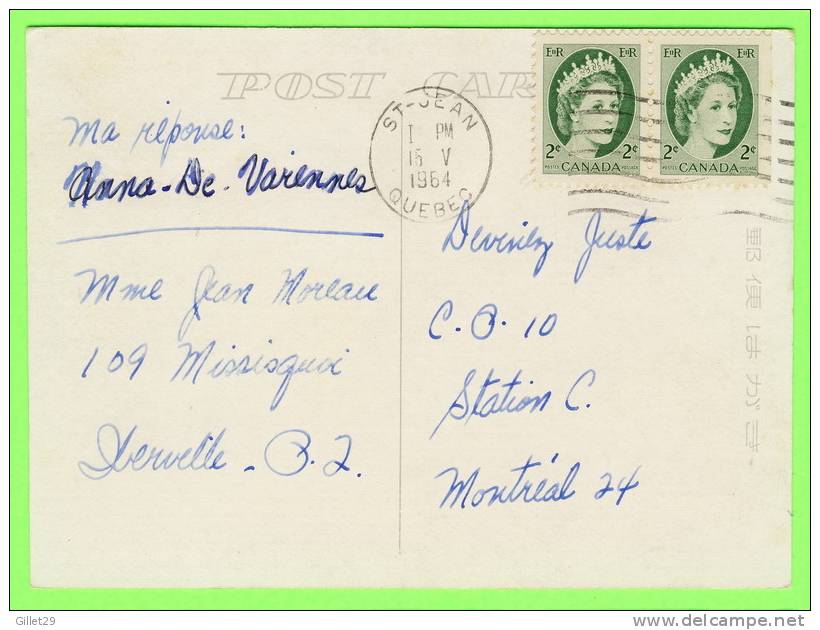 POST CAR
EIIR EIIR
EIIR EIIR
2¢ 2¢
CANADA
POSTES POSTAGE
2¢ 2¢
CANADA
POSTES POSTAGE
ST-JEAN
PM
15 V
1964
QUEBEC
ma réponse:
Anna-De-Varennes
Mme Jean Moreau
109 Missisquoi
Iberville - P.Q.
Devinez Juste
C.P. 10
Station C.
Montréal 24
郵便はがき
Gillet29
delcampe.net